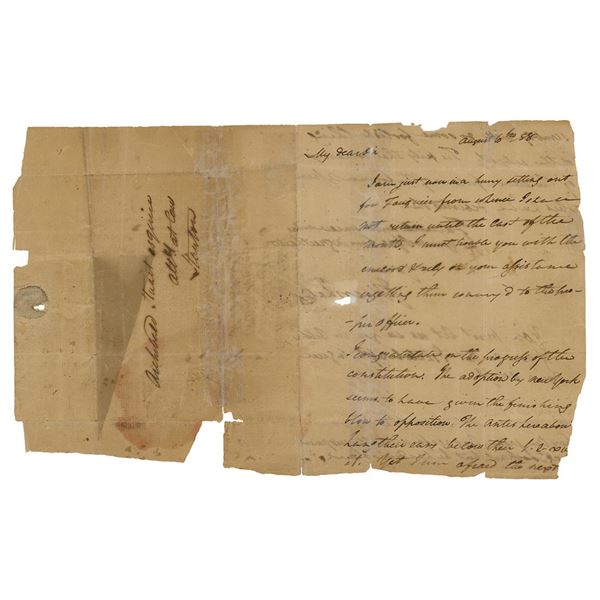 August 6th 88
My dear Sir
I am just now in a hurry setting out
for Fauquier from whence I shall
not return until the last of the
month. I must trouble you with the
enclosed & rely on your assistance
in getting them convey'd to the pro-
-per officer.
I congratulate on the progress of the
constitution. The adoption by new York
seems to have given the finishing
blow to opposition. The Antis hereabou
hang their ears before their
it. Yet I am afraid the next
Archibald Stuart esquire
Atty at Law
Stanton